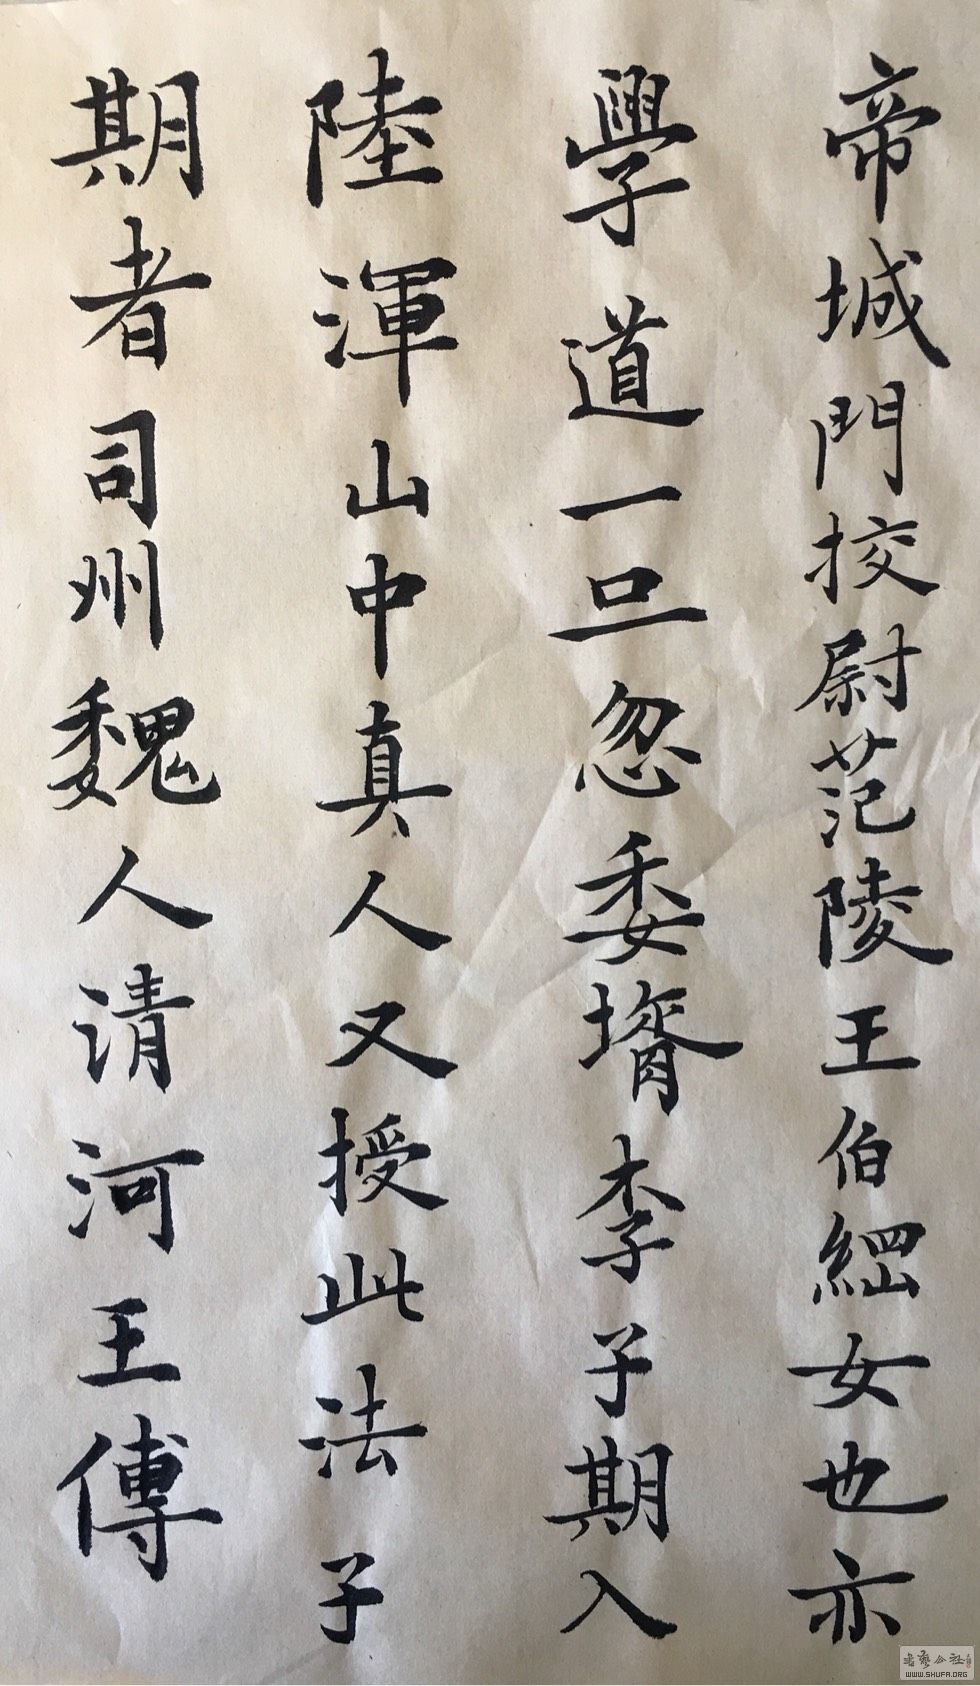 帝城門挍尉范陵王伯綱女也亦
學道一旦忽委壻李子期入
陸渾山中真人又授此法子
期者司州魏人清河王傳
WWW.SHUFA.ORG